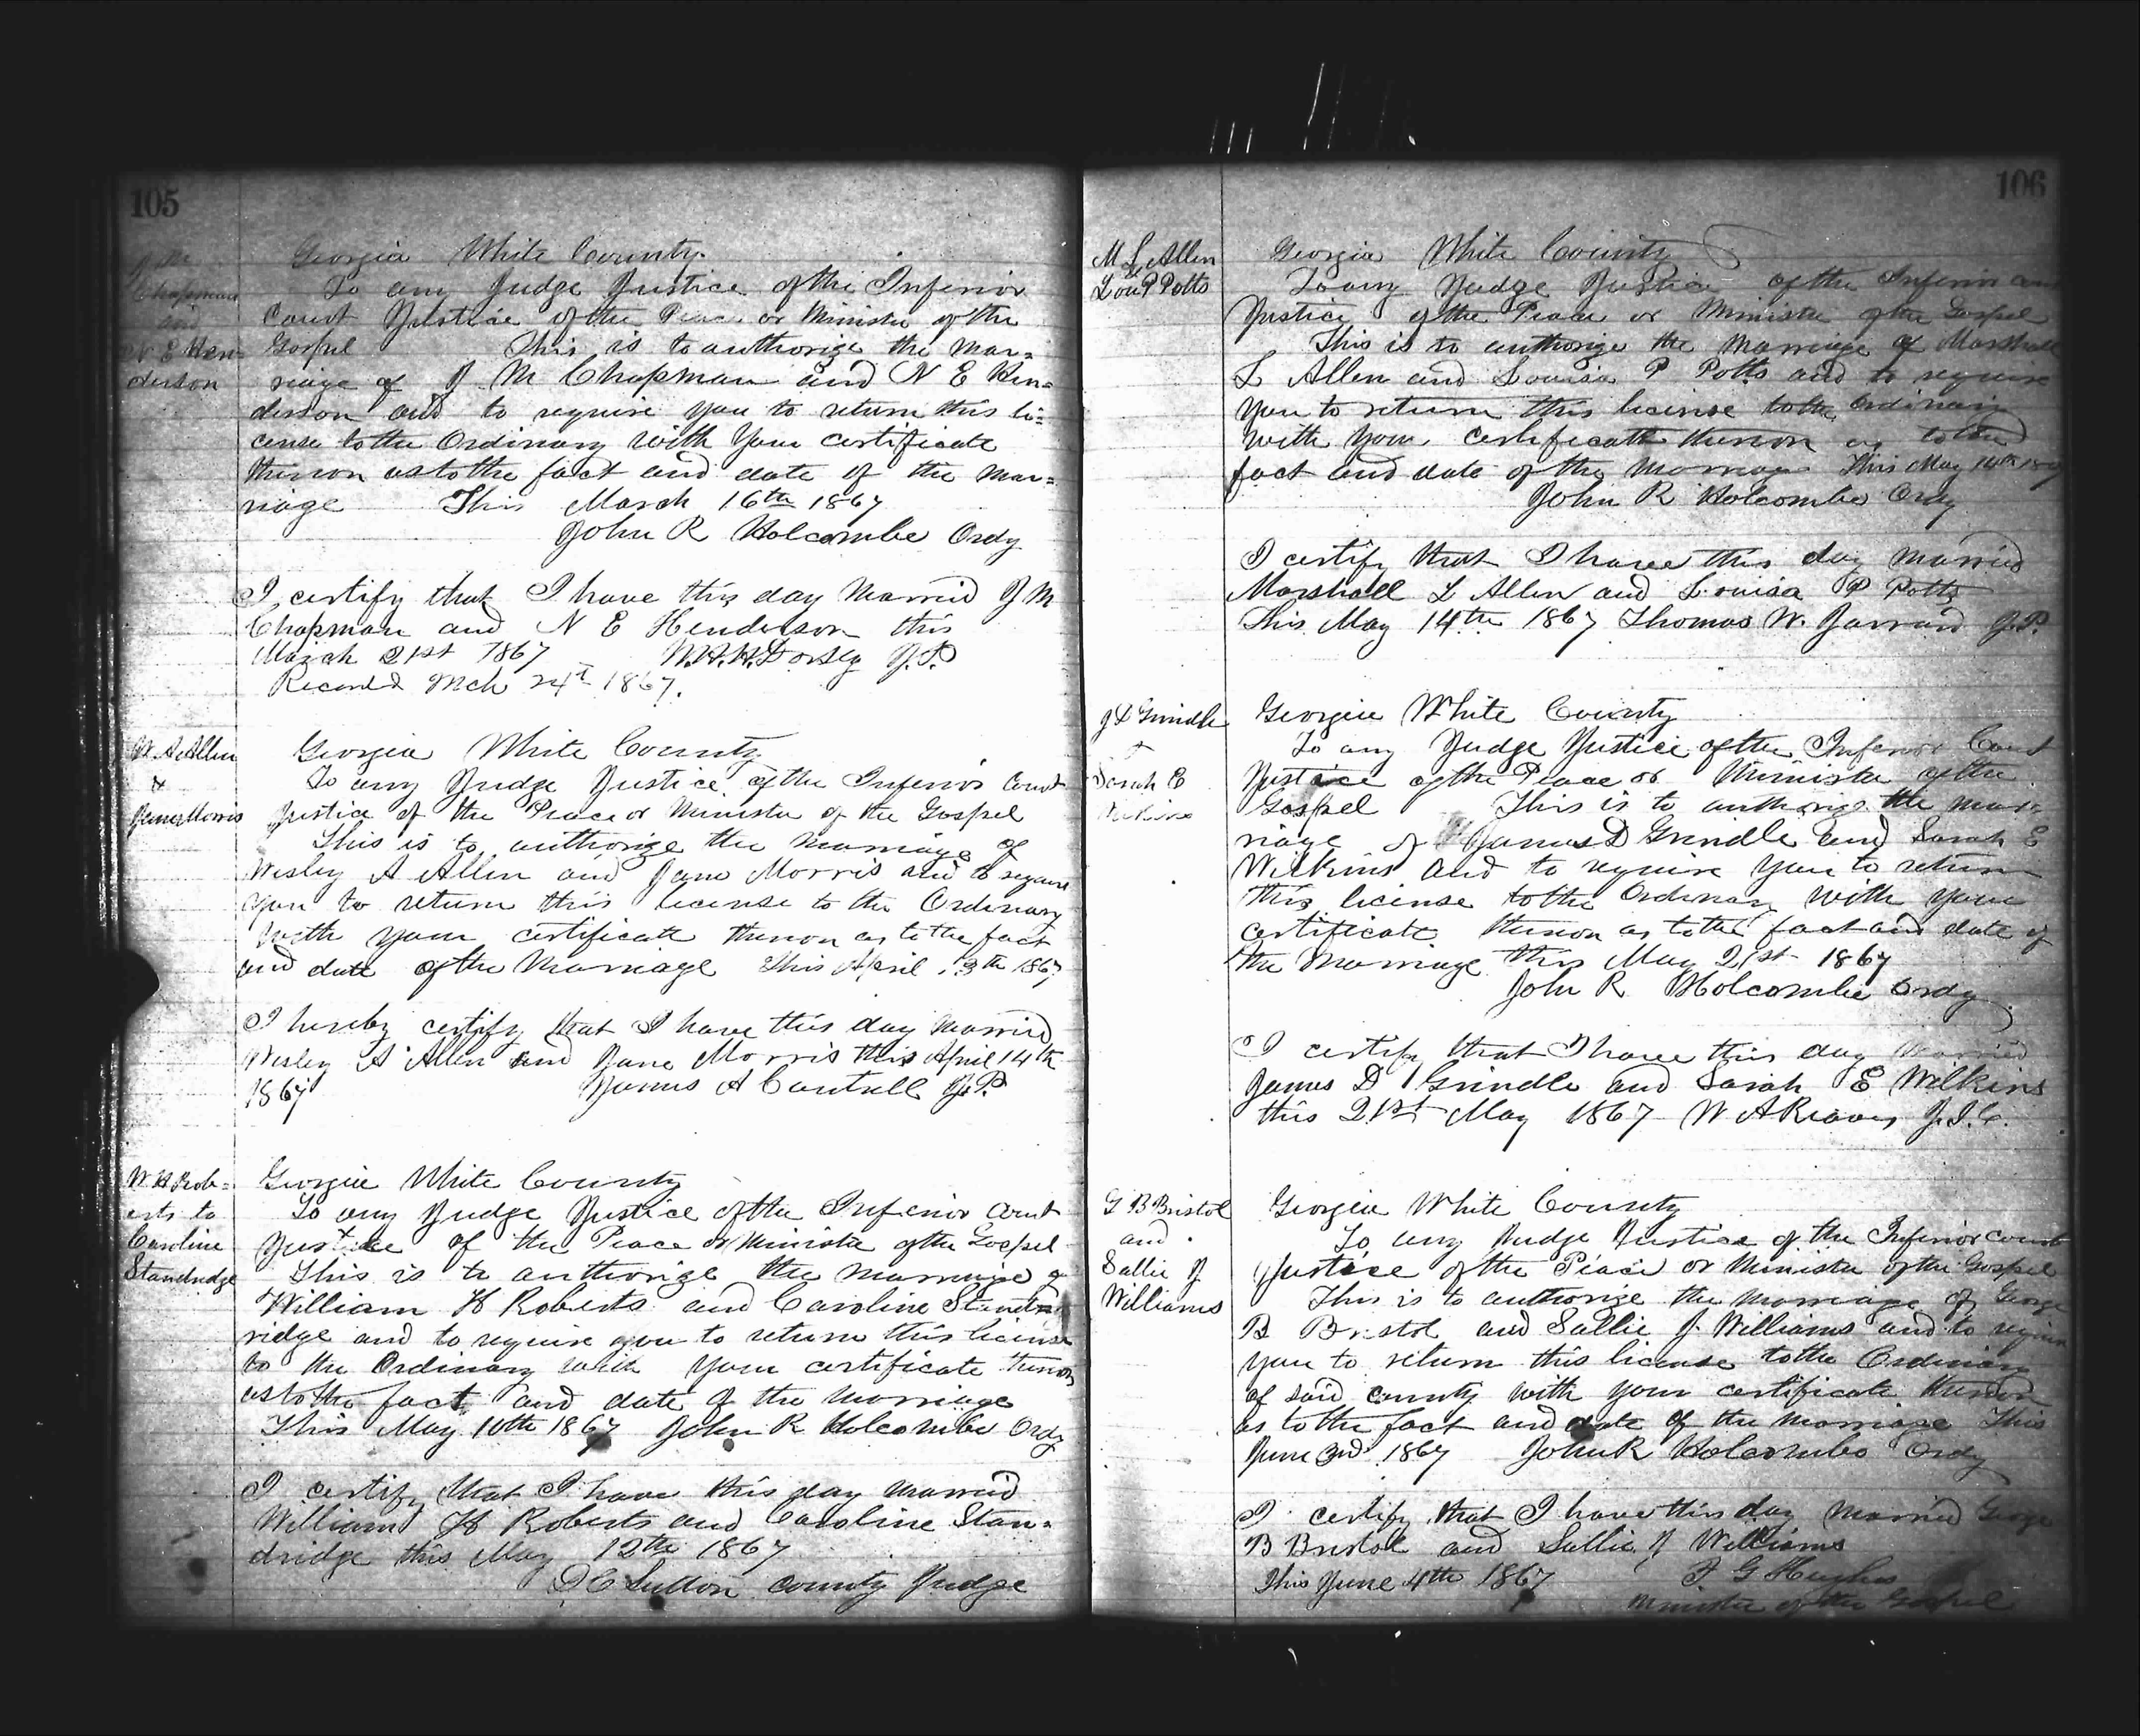 105
J M
Chapman
and
N E Hen-
derson
Georgia White County.
To any Judge Justice of the Inferior
Court Justice of the Peace or Minister of the
Gospel This is to authorize the mar=
riage of J M Chapman and N E Hen=
derson and to require you to return this li=
cense to the Ordinary with your certificate
thereon as to the fact and date of the mar=
riage This March 16th 1867
John R Holcombe Ordy
I certify that I have this day Married J M
Chapman and N E Henderson this
March 21st 1867 W.H.H. Dorsey J.P.
Record Mch 24th 1867.
W. A. Allen
&
Jane Morris
Georgia White County
To any Judge Justice of the Inferior Court
Justice of the Peace or Minister of the Gospel
This is to authorize the marriage of
Wesley A Allen and Jane Morris and to require
you to return this license to the Ordinary
with your certificate thereon as to the fact
and date of the marriage This April 13th 1867
I hereby certify that I have this day married
Wesley A Allen and Jane Morris this April 14th
1867 James A Cantrell J.P.
W. H Rob=
erts to
Caroline
Standridge
Georgia White County
To any Judge Justice of the Inferior court
Justice of the Peace or Minister of the Gospel
This is to authorize the marriage of
William H Roberts and Caroline Stand
ridge and to require you to return this license
to the Ordinary with your certificate thereon
as to the fact and date of the marriage
This May 10th 1867 John R Holcombe Ordy
I certify that I have this day married
William H Roberts and Caroline Stan=
dridge this May 12th 1867
D C Sutton county Judge
106
M L Allen
&
Lou P Potts
Georgia White County
To any Judge Justice of the Inferior
Justice of the Peace or Minister of the Gospel
This is to authorize the marriage of Marshall
L Allen and Louisa P Potts and to require
you to return this license to the Ordinary
with your certificate thereon as to the
fact and date of the marriage This May 14th 1867
John R Holcombe Ordy
I certify that I have this day married
Marshall L Allen and Louisa P Potts
This May 14th 1867 Thomas W. Jarrard J.P.
J D Grindle
+
Sarah E
Wilkins
Georgia White County
To any Judge Justice of the Inferior Court
Justice of the Peace or Minister of the
Gospel This is to authorize the mar=
riage of James D Grindle and Sarah E
Wilkins and to require you to return
this license to the Ordinary with your
certificate thereon as to the fact and date of
the marriage this May 21st 1867
John R Holcombe Ordy
I certify that I have this day married
James D Grindle and Sarah E Wilkins
this 21st May 1867 W A Reaves J.I.C.
G B Bristol
and
Sallie J
Williams
Georgia White County
To any Judge Justice of the Inferior court
Justice of the Peace or Minister of the Gospel
This is to authorize the marriage of George
B Bristol and Sallie J. Williams and to require
you to return this license to the Ordinary
of said county with your certificate thereon
as to the fact and date of the marriage This
June 3rd 1867 John R Holcombe Ordy
I certify that I have this day married George
B Bristol and Sallie J Williams
This June 4th 1867 F G Hughes
Minister of the Gospel